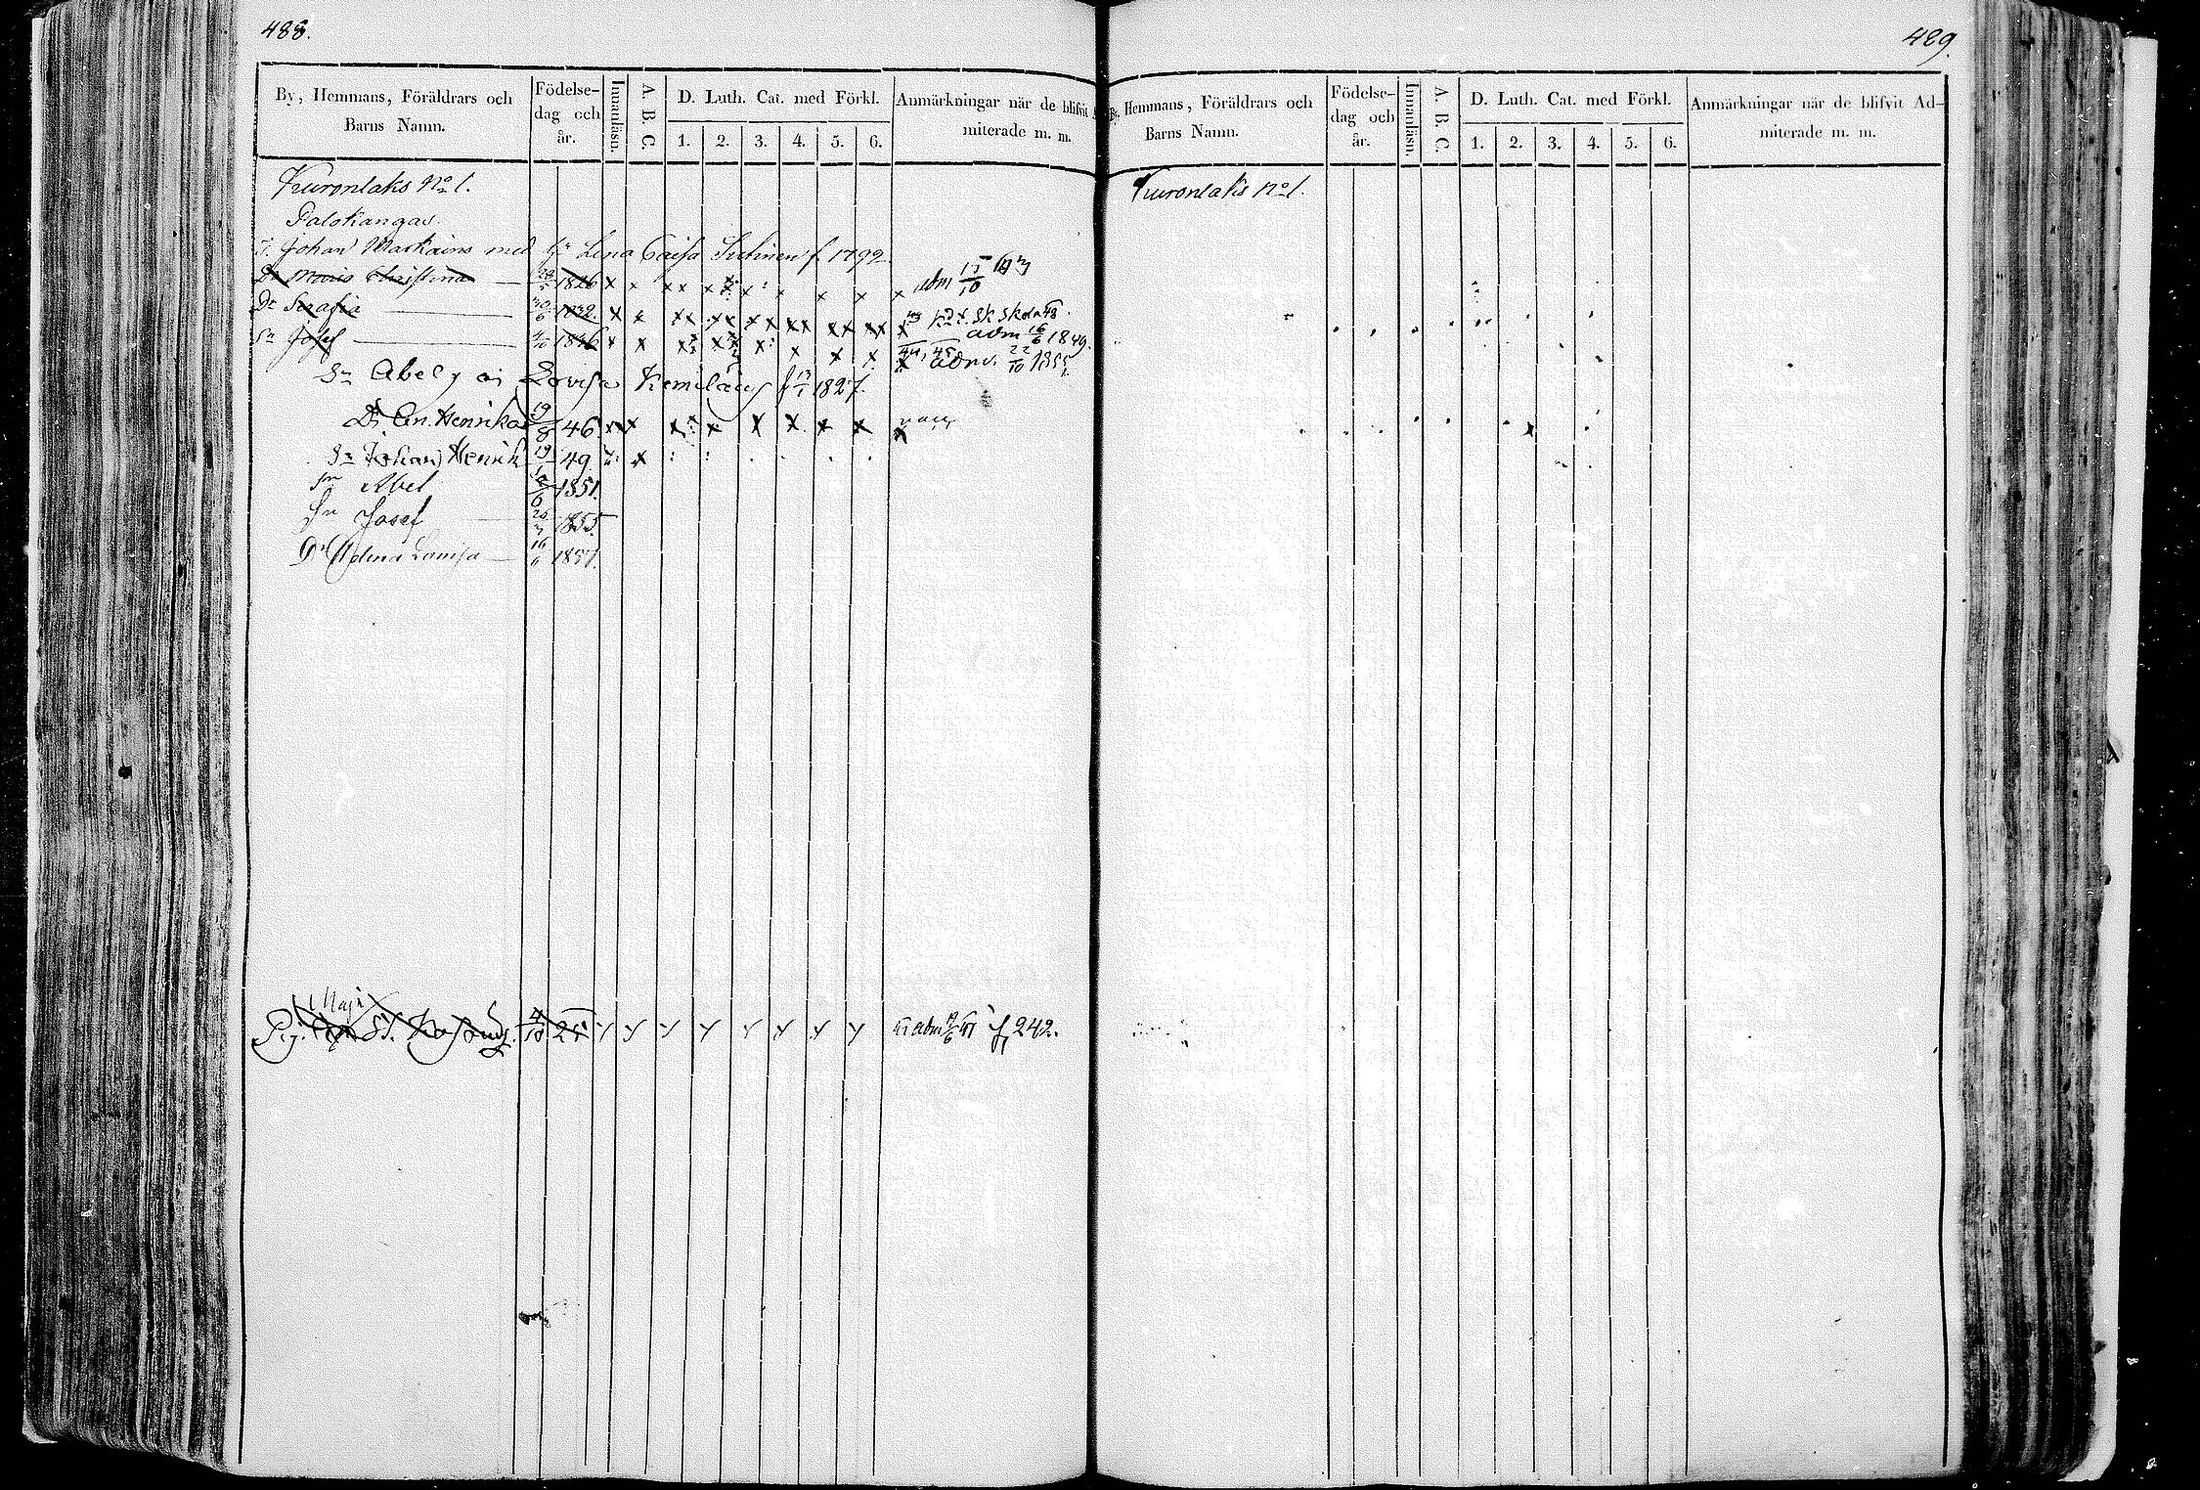 488.
By, Hemmans, Föräldrars och Barns Namn.
Födelse-dag och år.
Innanläsn.
A. B. C.
D. Luth. Cat. med Förkl.
1. 2. 3. 4. 5. 6.
Anmärkningar när de blifvit Ad-
miterade m. m.
Kuronlaks No 1.
Palokangas.
Johan Markains med Lena Caisa Suhinen f. 1792
Dr Maria Christina 1826 x x xx x x x x x adm 15/10
Dr Serafia 30/6 1832 x x xx xx xx xx xx xx x Sk skola 48. adm 16/6 1849.
Sn Josef 1836 x x x x x x x x admv. 22/10
Sn Abel Lovisa Kemiläin f 1827.
Dr An. Henrika 19/8 46 x x x x x x x x
Sn Johan Henrik 19 49 x
Sn Abel 1851.
Sn Josef 1855.
Dr Adena Lovisa 16 1857.
Maja
Pig. St. 4/10 25 adm 242.
489.
By, Hemmans, Föräldrars och Barns Namn.
Födelse-dag och år.
Innanläsn.
A. B. C.
D. Luth. Cat. med Förkl.
1. 2. 3. 4. 5. 6.
Anmärkningar när de blifvit Ad-
miterade m. m.
Kuronlaks No 1.